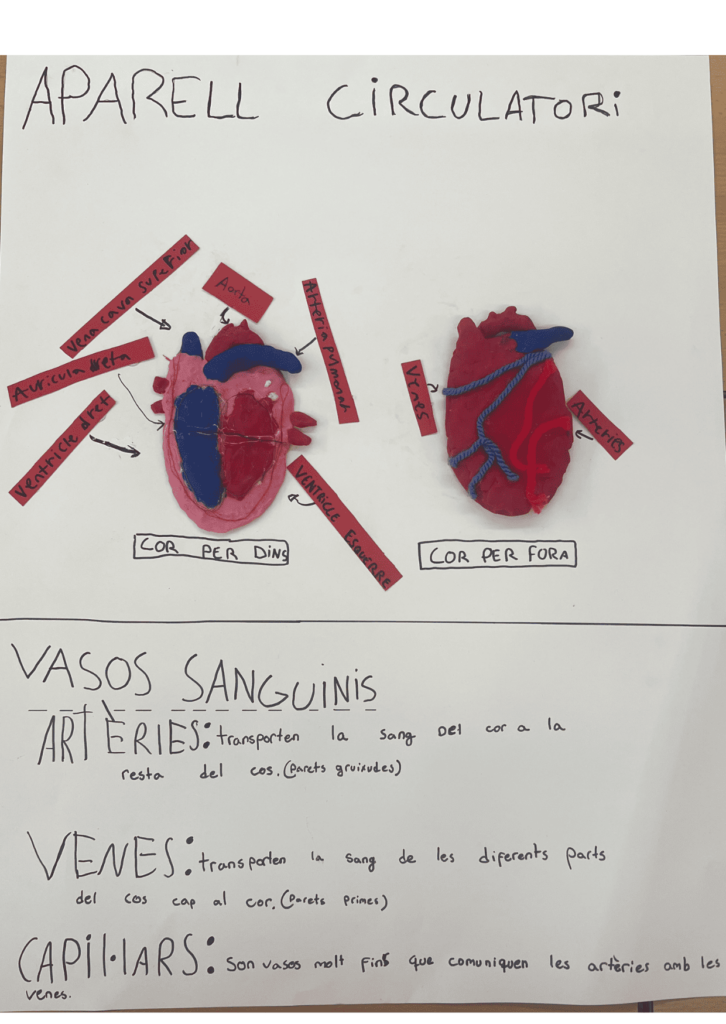 APARELL CIRCULATORI
Vena cava superior
Aorta
Arteria pulmonar
Auricula dreta
Ventricle dret
VENTRICLE ESQUERRE
COR PER DINS
Venes
Arteries
COR PER FORA
VASOS SANGUINIS
ARTÈRIES: transporten la sang del cor a la
resta del cos. (Parets gruixudes)
VENES: transporten la sang de les diferents parts
del cos cap al cor. (Parets primes)
CAPIL·LARS: Son vasos molt fins que comuniquen les artèries amb les
venes.